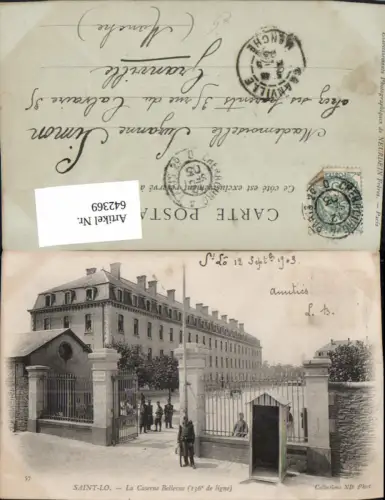 CARTE POSTALE
Ce côté est exclusivement réservé à
Mademoiselle Suzanne Simon
chez ses parents 35 rue du Calvaire 35
Granville
(Manche)
GRANVILLE
MANCHE
Artikel Nr.
642369
St Lô 18 Septbre 1903
Amitiés
L. S.
37
SAINT-LO. - La Caserne Bellevue (136e de ligne)
Collections ND Phot